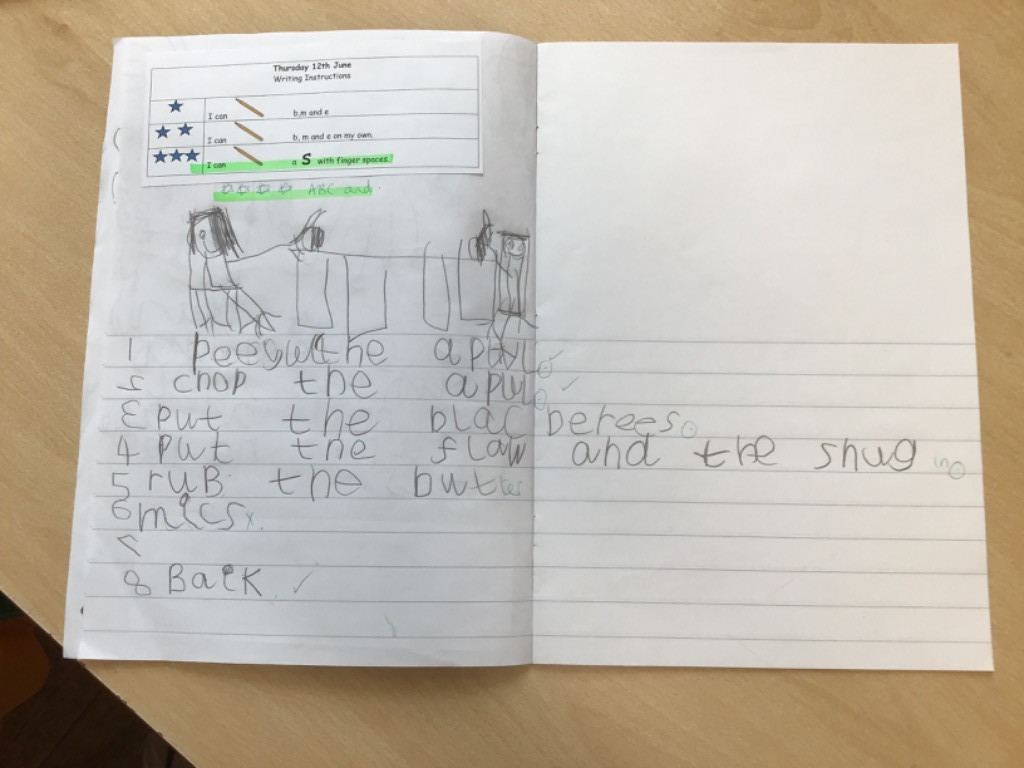 Thursday 12th June
Writing Instructions
I can b,m and e
I can b, m and e on my own.
I can a S with finger spaces.
ABC and.
1 the
2 chop the apul
3 put the blac berees.
4 put the flaw and the shug in
5 ruB the butter
6 mics x.
7
8 Back.